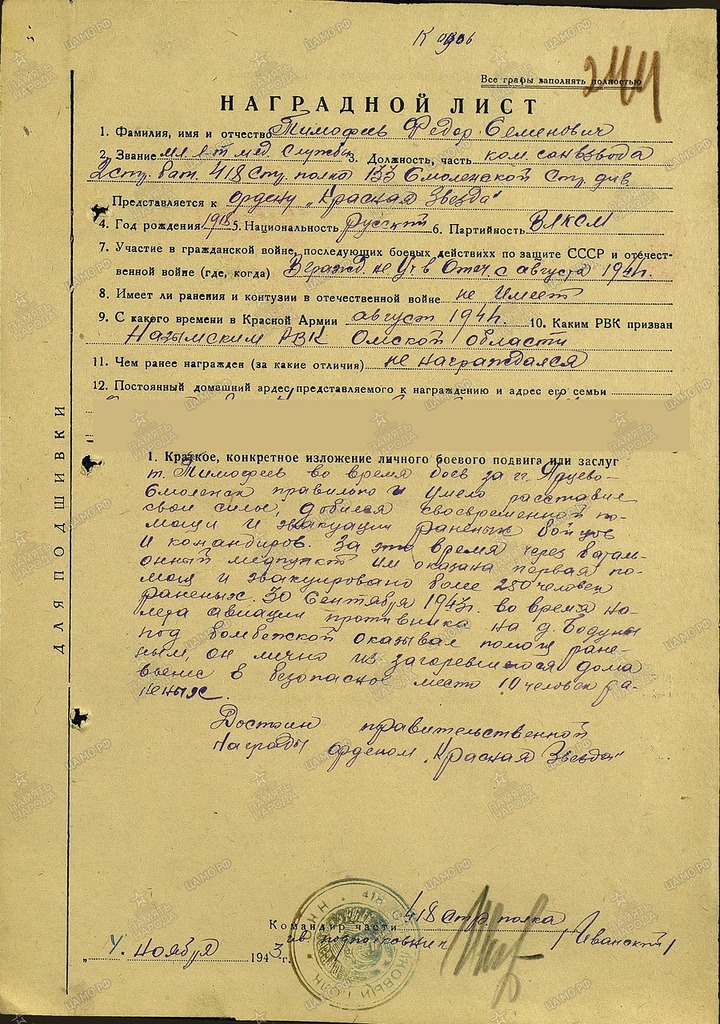 К 0906
244
Все графы заполнять полностью
НАГРАДНОЙ ЛИСТ
1. Фамилия, имя и отчество Тимофеев Федор Семенович
2. Звание мл л-т мед. службы 3. Должность, часть ком. санвзвода
2 стр. бат. 418 стр. полка 133 Смоленской Стр. див.
Представляется к ордену „Красная Звезда"
4. Год рождения 1918 5. Национальность русский 6. Партийность ВЛКСМ
7. Участие в гражданской войне, последующих боевых действиях по защите СССР и отечест-
венной войне (где, когда) В гражд. не уч в Отеч с августа 1941г.
8. Имеет ли ранения и контузии в отечественной войне не имеет
9. С какого времени в Красной Армии август 1941г. 10. Каким РВК призван
РВК Омской области
11. Чем ранее награжден (за какие отличия) не награждался
12. Постоянный домашний адрес представляемого к награждению и адрес его семьи
1. Краткое, конкретное изложение личного боевого подвига или заслуг
т. Тимофеев во время боев за гг. Ярцево-
Смоленск правильно и умело расставив
свои силы, добился своевременной по-
мощи и эвакуации раненых бойцов
и командиров. За это время через батал-
ионный медпункт им оказана первая по-
мощ и эвакуировано более 250 человек
раненых. 30 Сентября 1943г. во время на-
лета авиации противника на д. Бодуны
под бомбежкой оказывал помощ ране-
ным, он лично из загоревшегося дома
вынес в безопасное место 10 человек ра-
неных.
Достоин правительственной
награды орденом „Красная Звезда"
Командир части 418 стр. полка
гв. подполковник /Иванский/
„4" ноября 1943 г.
ДЛЯ ПОДШИВКИ
ПАМЯТЬ НАРОДА
ЦАМО.РФ